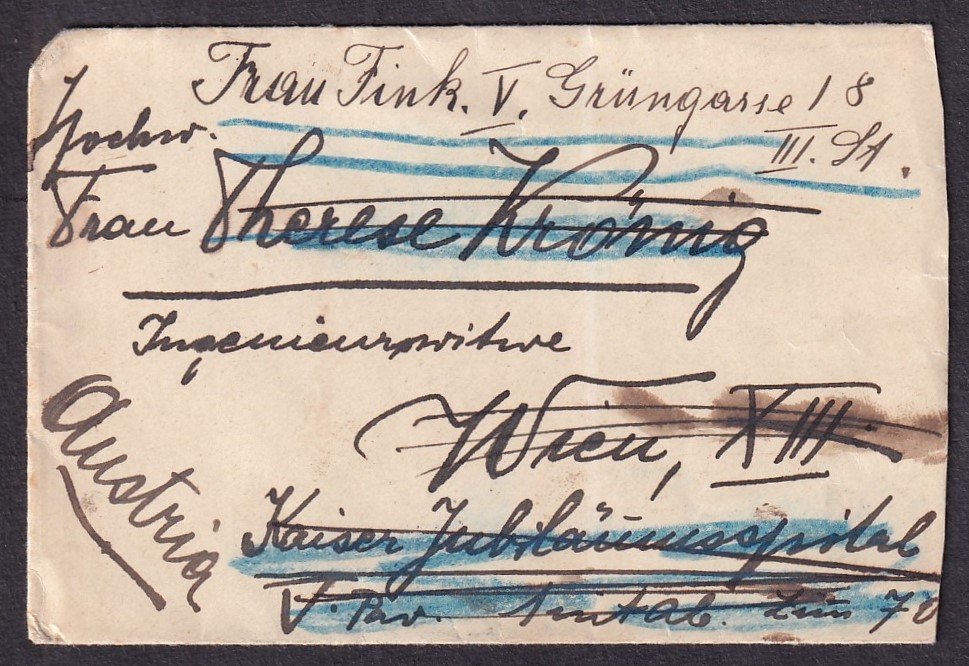 Frau Fink. V. Grüngasse 18
III. St.
Hochw.
Frau Therese Krönig
Ingenieurswitwe
Wien, XIII.
Austria
Kaiser Jubiläumsspital
V. Pav.